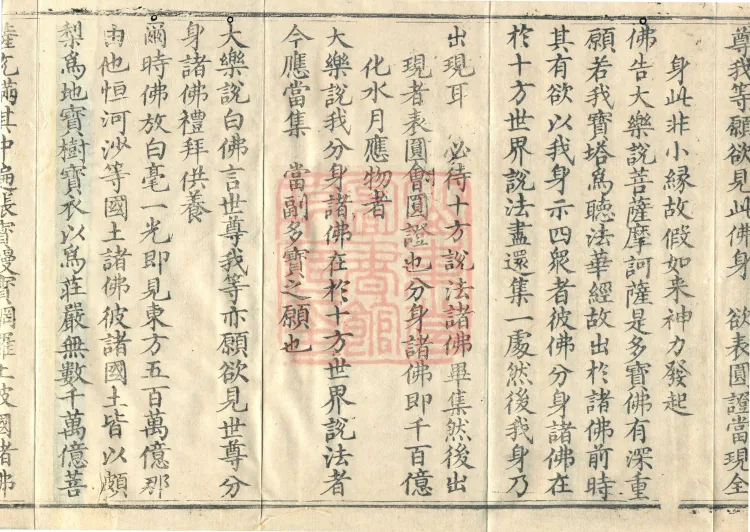 尊我等願欲見此佛身　欲表圓證當現全
身此非小縁故假如来神力發起
佛告大樂說菩薩摩訶薩是多寶佛有深重
願若我寶塔爲聽法華經故出於諸佛前時
其有欲以我身示四衆者彼佛分身諸佛在
於十方世界說法盡還集一處然後我身乃
出現耳　必待十方說法諸佛畢集然後出
現者表圓會圓證也分身諸佛即千百億
化水月應物者
大樂說我分身諸佛在於十方世界說法者
今應當集　當副多寶之願也
大樂說白佛言世尊我等亦願欲見世尊分
身諸佛禮拜供養
爾時佛放白毫一光即見東方五百萬億那
由他恒河沙等國土諸佛彼諸國土皆以頗
梨爲地寶樹寶衣以爲莊嚴無數千萬億菩
薩充滿其中遍張寶幔寶網羅上彼國諸佛